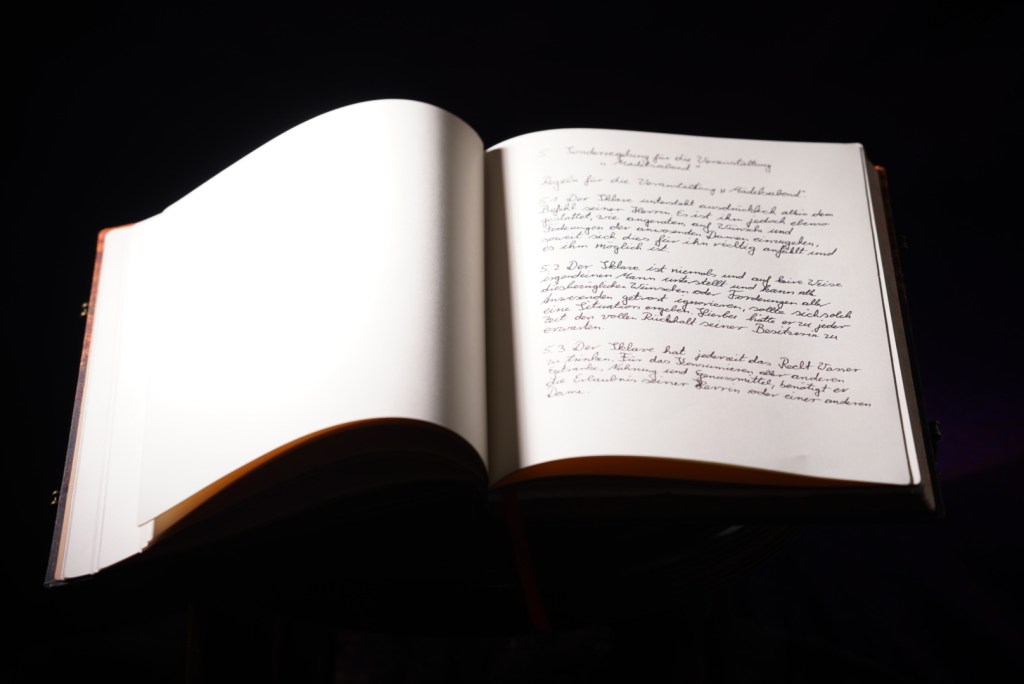 5. Sonderregelung für die Veranstaltung
"Mädelsabend"
Regeln für die Veranstaltung "Mädelsabend".
5.1 Der Sklave untersteht ausdrücklich allein dem
Befehl seiner Herrin. Es ist ihm jedoch ebenso
gestattet, wie angeraten auf Wünsche und
Forderungen der anwesenden Damen einzugehen,
soweit sich dies für ihn richtig anfühlt und
es ihm möglich ist.
5.2 Der Sklave ist niemals und auf keine Weise
irgendeinem Mann unterstellt und kann alle
diesbezüglichen Wünsche oder Forderungen aller
Anwesenden getrost ignorieren, sollte sich solch
eine Situation ergeben. Hierbei hätte er zu jeder
Zeit den vollen Rückhalt seiner Besitzerin zu
erwarten.
5.3 Der Sklave hat jederzeit das Recht Wasser
zu trinken. Für das Konsumieren aller anderen
Getränke, Nahrung und Genussmittel, benötigt er
die Erlaubnis seiner Herrin oder einer anderen
Dame.